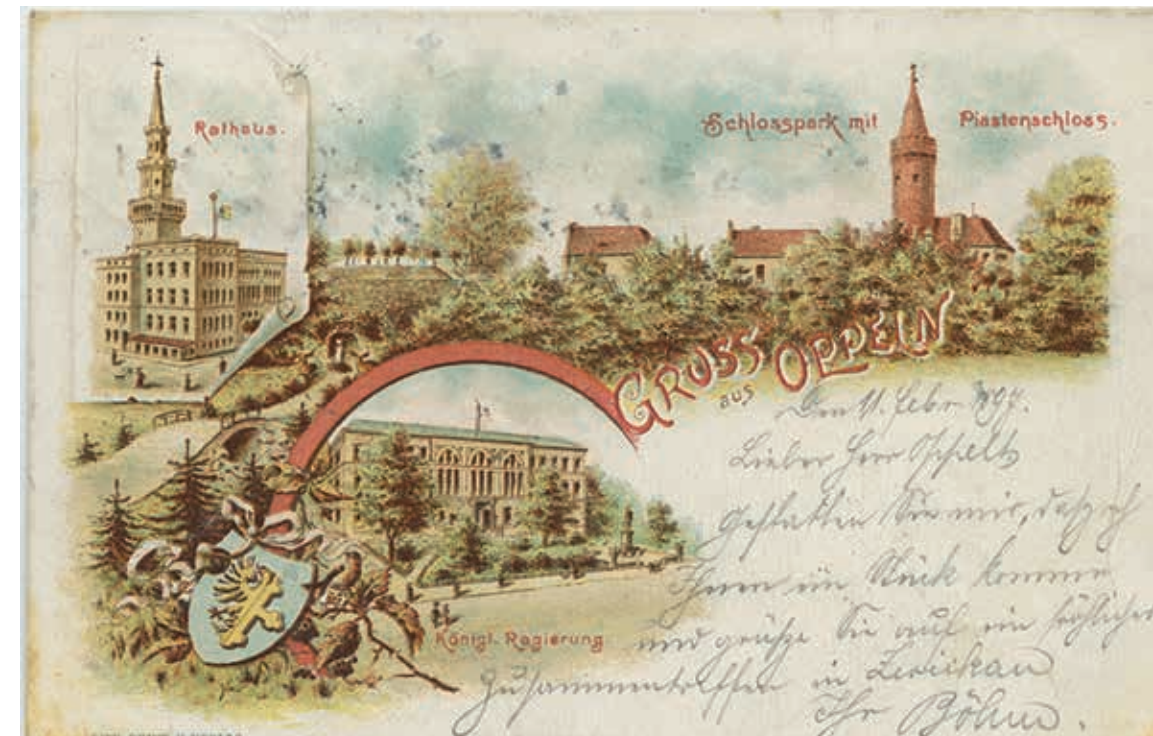 Rathaus.
Schlosspark mit Piastenschloss.
GRUSS
aus OPPELN
Den 11. Febr. 1897.
Lieber Herr
gestatten Sie mir, daß ich
Ihnen ein Stück komme
und grüße Sie auf ein fröhliches
Zusammentreffen in Zwickau
Ihr Böhm.
Königl. Regierung